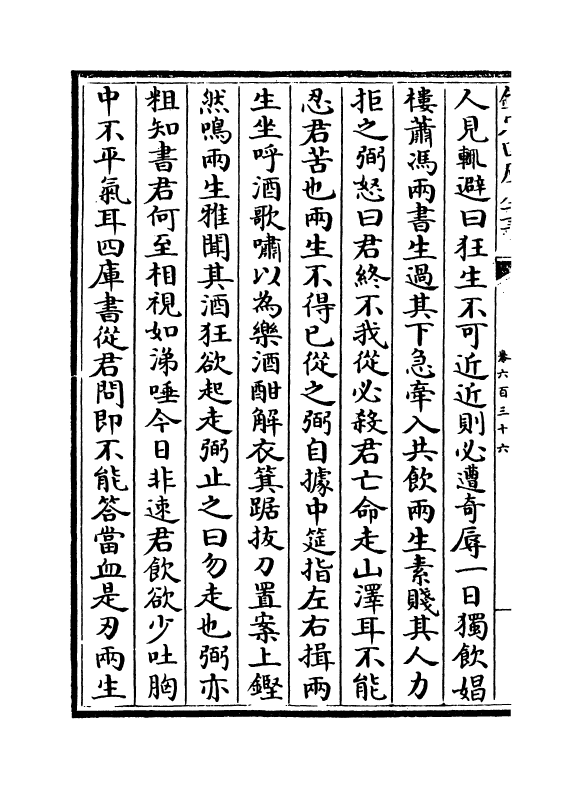 卷六百三十六
人見輒避曰狂生不可近近則必遭奇辱一日獨飲娼
樓蕭馮兩書生過其下急牽入共飲兩生素賤其人力
拒之弼怒曰君終不我從必殺君亡命走山澤耳不能
忍君苦也兩生不得已從之弼自據中筵指左右揖兩
生坐呼酒歌嘯以為樂酒酣解衣箕踞拔刀置案上鏗
然鳴兩生雅聞其酒狂欲起走弼止之曰勿走也弼亦
粗知書君何至相視如涕唾今日非速君飲欲少吐胸
中不平氣耳四庫書從君問即不能答當血是刃兩生